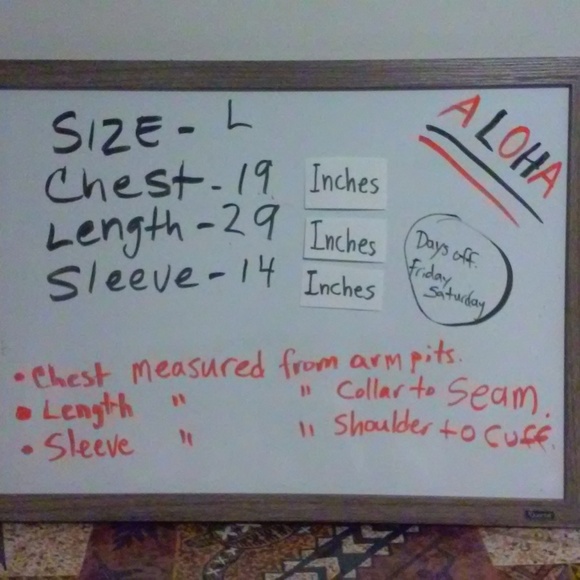 SIZE - L
Chest - 19 Inches
Length - 29 Inches
Sleeve - 14 Inches
ALOHA
Days off.
Friday
Saturday
• Chest measured from armpits.
• Length " " Collar to Seam.
• Sleeve " " Shoulder to Cuff.